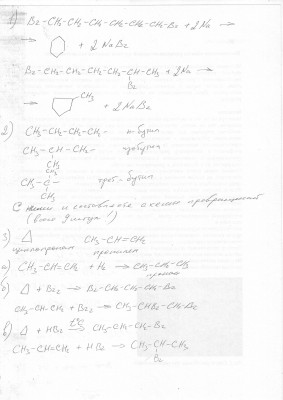 1) Br-CH₂-CH₂-CH₂-CH₂-CH₂-CH₂-Br + 2Na →
→ + 2NaBr
Br-CH₂-CH₂-CH₂-CH₂-CH-CH₃ + 2Na →
Br
→ CH₃ + 2NaBr
2) CH₃-CH₂-CH₂-CH₂- н-бутил
CH₃-CH-CH₂-
CH₃
CH₃
CH₃-C- трет.-бутил
CH₃
С и составьте схемы превращений
(всего 9 штук!)
3) △ CH₃-CH=CH₂
циклопропан пропилен
а) CH₃-CH=CH₂ + H₂ → CH₃-CH₂-CH₃
пропан
б) △ + Br₂ → Br-CH₂-CH₂-CH₂-Br
CH₃-CH=CH₂ + Br₂ → CH₃-CHBr-CH₂Br
в) △ + HBr → CH₃-CH₂-CH₂-Br
CH₃-CH=CH₂ + HBr → CH₃-CH-CH₃
Br